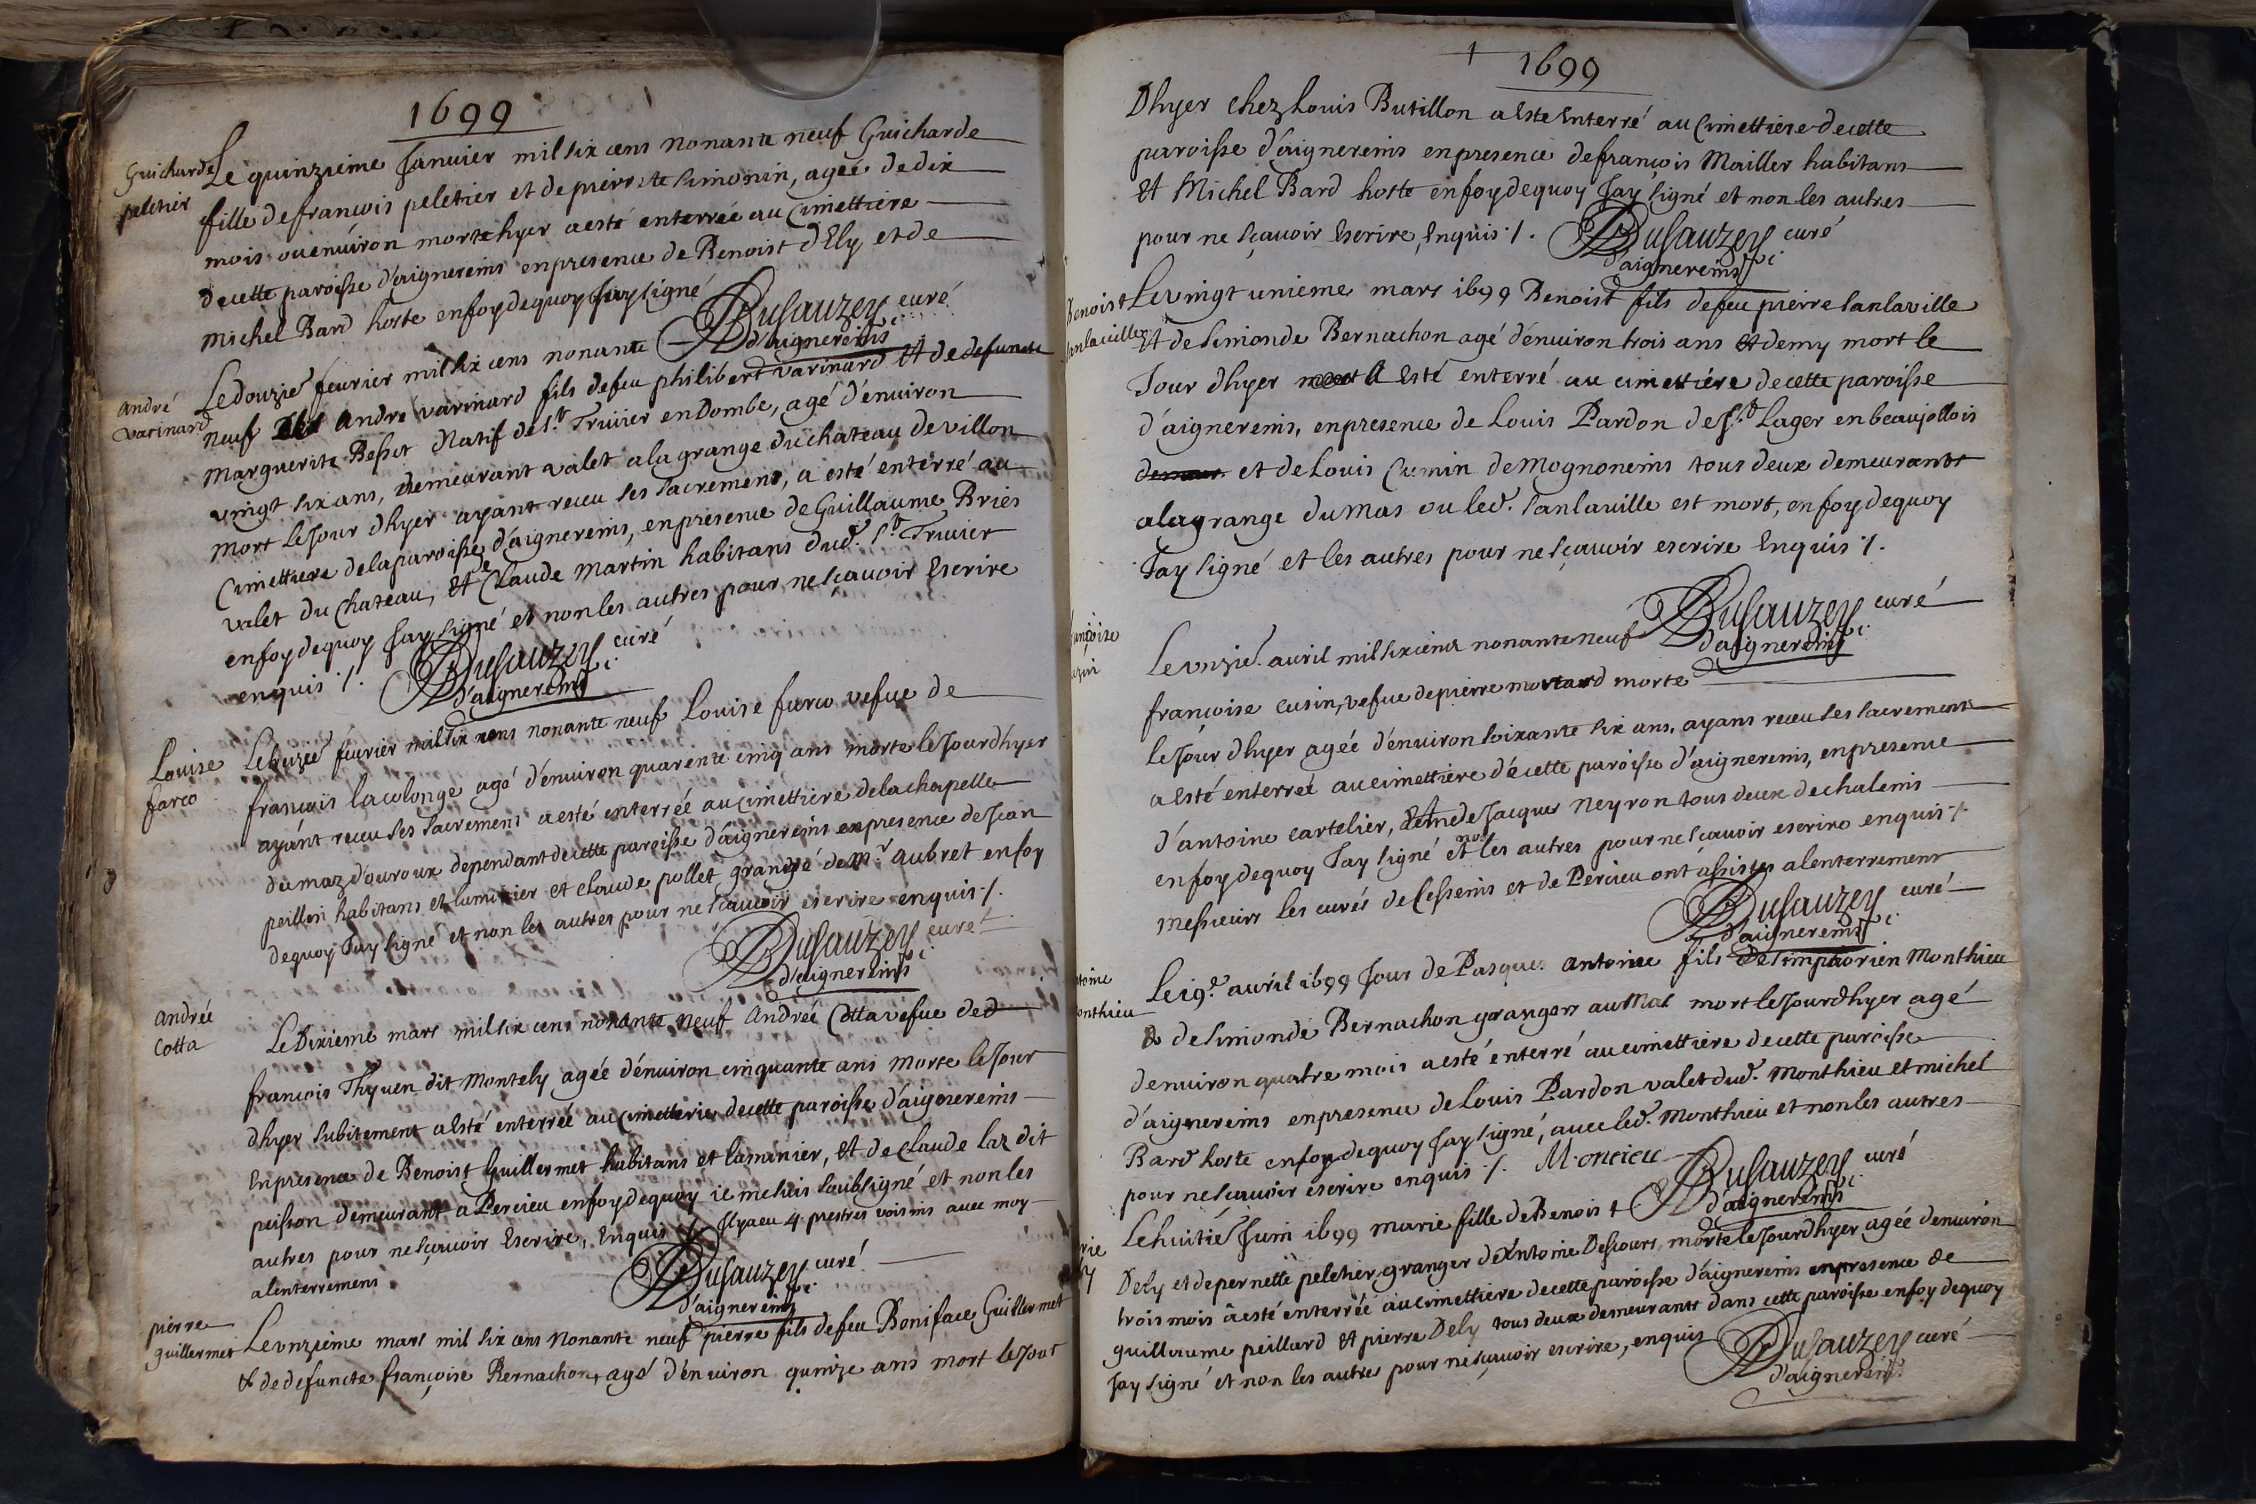 1699
Guicharde
peletier
Le quinzieme Janvier mil six cens nonante neuf Guicharde
fille de francois peletier et de pierrete simonin, ageé de dix
mois ou enúiron morte hyer a esté enterreé au Cimettiere
de cette paroisse d'aignereins en presence de Benoist d'Ely et de
michel Bard hoste en foy de quoy Jay signé
BDusauzey curé
d'aignereins
andré
varinard
Le douzie. feurier mil six cens nonante
neuf andre varinard fils de feu philibert varinard et de defuncte
Marguerite Besset Natif de St. Triuier en Dombe, agé d'énuiron
vingt six ans, demeurant valet a la grange du chateau de villon
mort le Jour dhyer ayant receu ses sacremens, a esté enterré au
Cimettiere de la paroisse d'aignereins, en presence de Guillaume Bries
valet du chateau, et Claude martin habitans dud. St. Triuier
en foy de quoy Jay signé et non les autres pour ne sçauoir Escrire
enquis ./.
BDusauzey curé
d'aignereins
Louise
farco
Le feurier mil six cens nonante neuf Louise farco vefue de
francois lacolonge agé d'énuiron quarente cinq ans morte le Jour dhyer
ayánt receu ses sacremens a esté enterreé au cimettiere de la chapelle
du maz d'ouroux dependant de cette paroisse d'aignereins en presence de Jean
peillon habitans et luminier et claude pollet grangé de mr. aubret en foy
de quoy Jay signé et non les autres pour ne scauoir escrire enquis ./.
BDusauzey curé
d'aignereins
andreé
Cotta
Le Dixieme mars mil six cens nonante neuf andreé Cotta vefue de d
francois Thyuen dit Montely ageé d'énuiron cinquante ans morte le Jour
dhyer subitement a Esté enterreé au cimetterie de cette paroisse d'aignereins
En presence de Benoist Guillermet habitans et luminier, et de claude laz dit
peisson demeurant a Percieu en foy de quoy ie me suis soubsigné et non les
autres pour ne sçauoir Escrire, Enquis ./. Jl y a eu 4. prestres voisins auec moy
a lenterremens
BDusauzey curé
d'aignereins
pierre
guillermet
Le vnzieme mars mil six cens nonante neuf pierre fils de feu Boniface Guillermet
& de defuncte françoise Bernachon, agé d'énuiron quinze ans mort le Jour
1699
Dhyer chez Louis Butillon a Este Enterré au Cimettiere de cette
paroisse d'aignereins en presence de francois Mailler habitans
et Michel Bard hoste en foy de quoy Jay signé et non les autres
pour ne sçauoir Escrire, Enquis ./.
BDusauzey curé
d'aignereins
Benoist
sanlauille
Le vingt unieme mars 1699 Benoist fils de feu pierre sanlaville
et de simonde Bernachon agé d'énuiron trois ans et demy mort le
Jour dhyer a Esté enterré au cimettiére de cette paroisse
d'aignereins, en presence de Louis Pardon de St. Lager en beaujollois
et de Louis Cumin de Mognoneins tous deux demeurants
a la grange du Mas ou led. sanlauille est mort, en foy de quoy
Jay signé et les autres pour ne sçauoir escrire Enquis ./.
BDusauzey curé
d'aignereins
Le vnzie. auril mil six cens nonante neuf
françoise cusin, vefue de pierre mortard morte
le Jour dhyer ageé d'énuiron soixante six ans, ayans receu ses sacremens
a Esté enterreé au cimettiére de cette paroisse d'aignereins, en presence
d'antoine cartelier, et de Jacques Neyron tous deux de chaleins
en foy de quoy Jay signé et non les autres pour ne scauoir escrire enquis ./.
Messieurs les curés de Cesseins et de Percieu ont assistes a lenterrement
BDusauzey curé
d'aignereins
onthieu
Le 19e. auril 1699 Jour de Pasques antoine fils de simphorien Monthieu
& de simonde Bernachon grangers au Mas mort le Jour dhyer agé
denuiron quatre mois a esté enterré au cimettiére de cette paroisse
d'aignereins en presence de Louis Pardon valet dud. Monthieu et michel
Bard hoste en foy de quoy Jay signé, auec led. Monthieu et non les autres
pour ne scauoir escrire enquis ./. Moncieu
BDusauzey curé
d'aignereins
Le huitié. Juin 1699 marie fille de Benoist
Dely et de pernette peletier granger de Antoine Descours, morte le Jour dhyer ageé denuiron
trois mois a esté enterreé au cimettiere de cette paroisse d'aignereins en presence de
guillaume peillard et pierre Dely tous deux demeurants dans cette paroisse en foy de quoy
Jay signé et non les autres pour ne sçauoir escrire, enquis
BDusauzey curé
d'aignereins